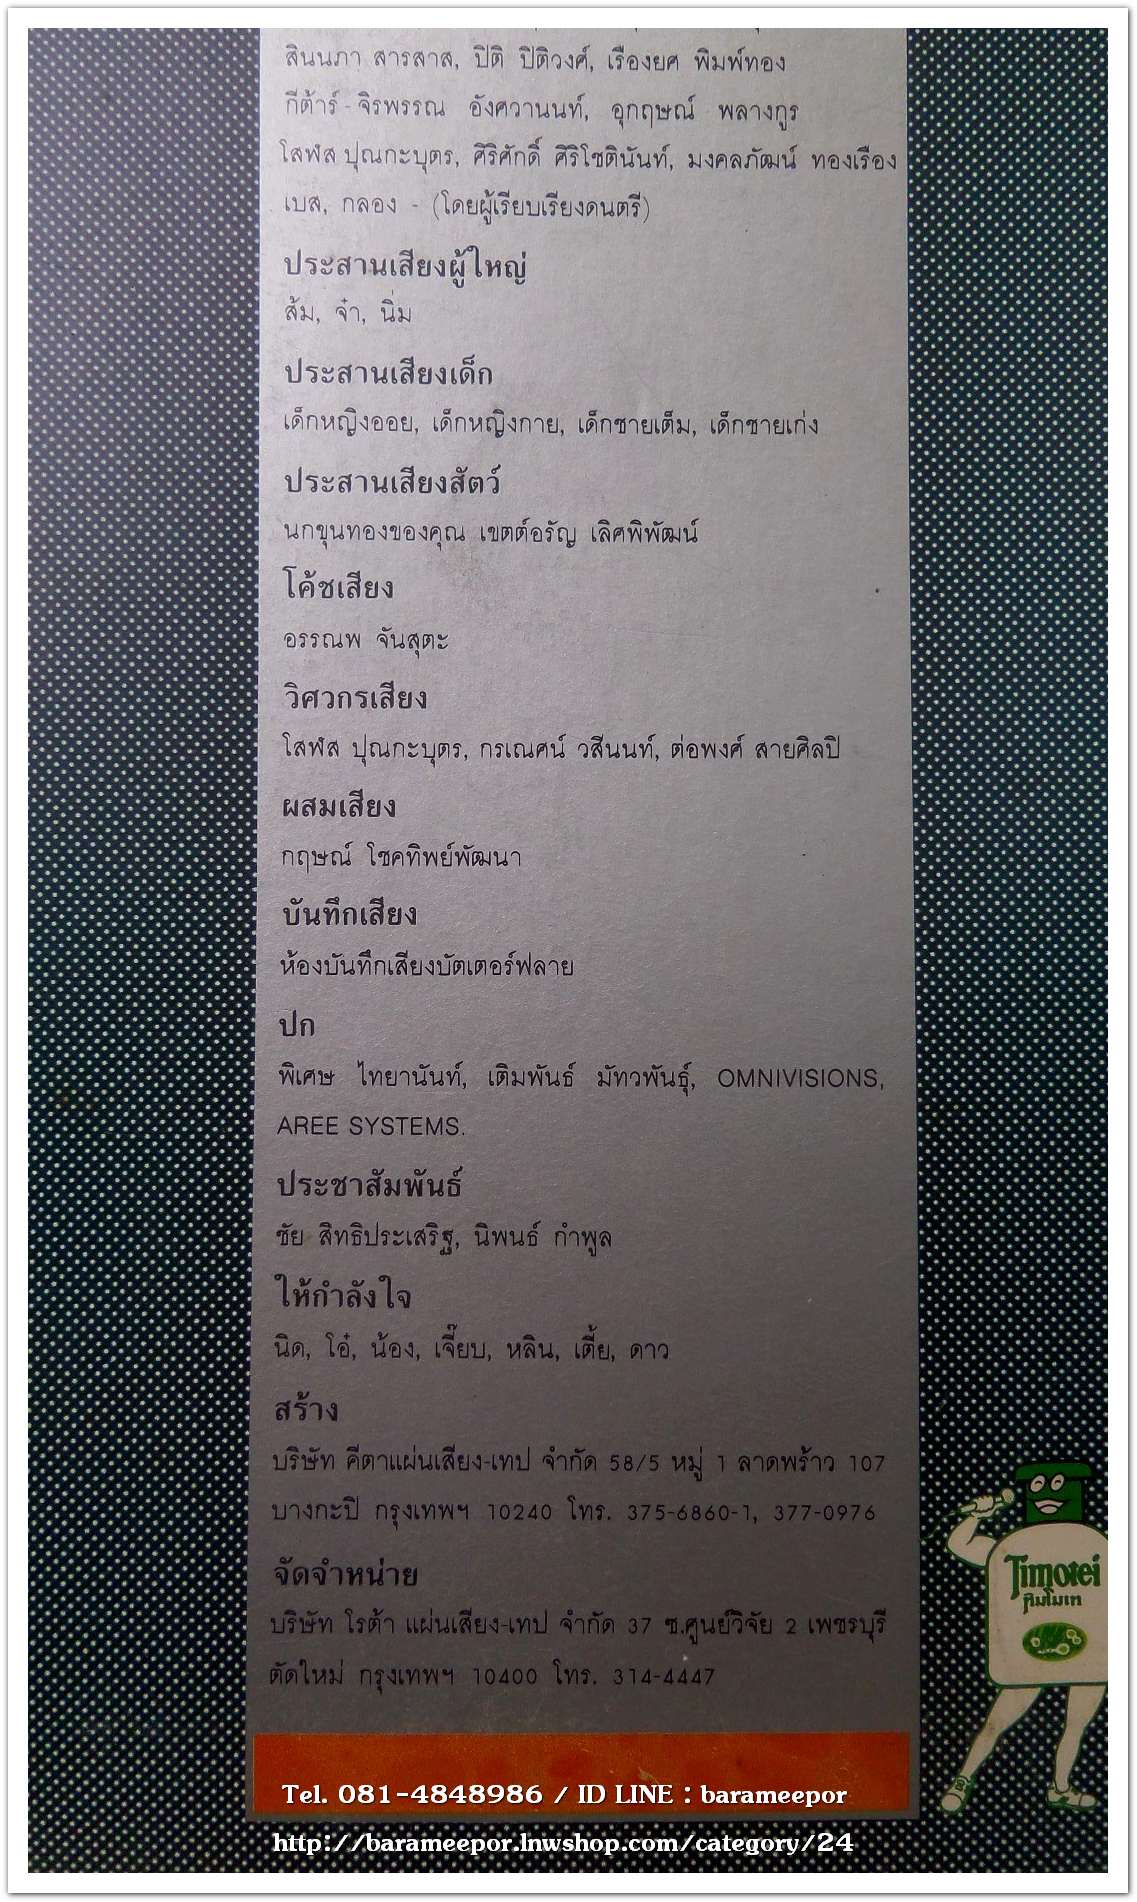 สินนภา สารสาส, ปิติ ปิติวงศ์, เรืองยศ พิมพ์ทอง
กีต้าร์ - จิรพรรณ อังศวานนท์, อุกฤษณ์ พลางกูร
โสฬส ปุณกะบุตร, ศิริศักดิ์ ศิริโชตินันท์, มงคลภัฒน์ ทองเรือง
เบส, กลอง - (โดยผู้เรียบเรียงดนตรี)
ประสานเสียงผู้ใหญ่
ส้ม, จ๋า, นิ่ม
ประสานเสียงเด็ก
เด็กหญิงออย, เด็กหญิงกาย, เด็กชายเต็ม, เด็กชายเก่ง
ประสานเสียงสัตว์
นกขุนทองของคุณ เขตต์อรัญ เลิศพิพัฒน์
โค้ชเสียง
อรรณพ จันสุตะ
วิศวกรเสียง
โสฬส ปุณกะบุตร, กรเณศน์ วสีนนท์, ต่อพงศ์ สายศิลปิ
ผสมเสียง
กฤษณ์ โชคทิพย์พัฒนา
บันทึกเสียง
ห้องบันทึกเสียงบัตเตอร์ฟลาย
ปก
พิเศษ ไทยานันท์, เติมพันธ์ มัทวพันธุ์, OMNIVISIONS,
AREE SYSTEMS.
ประชาสัมพันธ์
ชัย สิทธิประเสริฐ, นิพนธ์ กำพูล
ให้กำลังใจ
นิด, โอ๋, น้อง, เจี๊ยบ, หลิน, เตี้ย, ดาว
สร้าง
บริษัท คีตาแผ่นเสียง-เทป จำกัด 58/5 หมู่ 1 ลาดพร้าว 107
บางกะปิ กรุงเทพฯ 10240 โทร. 375-6860-1, 377-0976
จัดจำหน่าย
บริษัท โรต้า แผ่นเสียง-เทป จำกัด 37 ซ.ศูนย์วิจัย 2 เพชรบุรี
ตัดใหม่ กรุงเทพฯ 10400 โทร. 314-4447
Timotei
ทิมโมเท
Tel. 081-4848986 / ID LINE : barameepor
http://barameepor.lnwshop.com/category/24